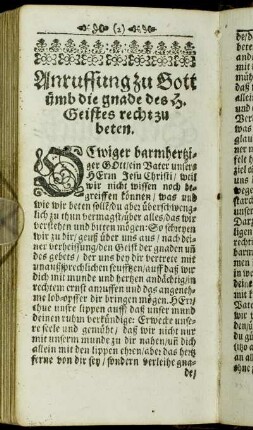 (2)
Anruffung zu Gott
ümb die gnade des H.
Geistes recht zu
beten.
O Ewiger barmhertzi-
ger GOtt/ein Vater unsers
HErrn Jesu Christi/ weil
wir nicht wissen noch be-
greiffen können/ was und
wie wir beten sollē/du aber überschweng-
lich zu thun vermagst/über alles/das wir
verstehen und bitten mögen: So schreyen
wir zu dir/ geuß über uns aus/ nach dei-
ner verheissung/den Geist der gnaden uñ
des gebets/ der uns bey dir vertrete mit
unaußsprechlichen seufftzen/auff daß wir
dich mit munde und hertzen andächtig/in
rechtem ernst anruffen und das angeneh-
me lob-opffer dir bringen mögen. HErr/
thue unsre lippen auff/ daß unser mund
deinen ruhm verkündige: Erwecke unse-
re seele und gemüht/ daß wir nicht nur
mit unserm munde zu dir nahen/uñ dich
allein mit den lippen ehren/aber das hertz
ferne von dir sey/ sondern verleihe gna-
de/